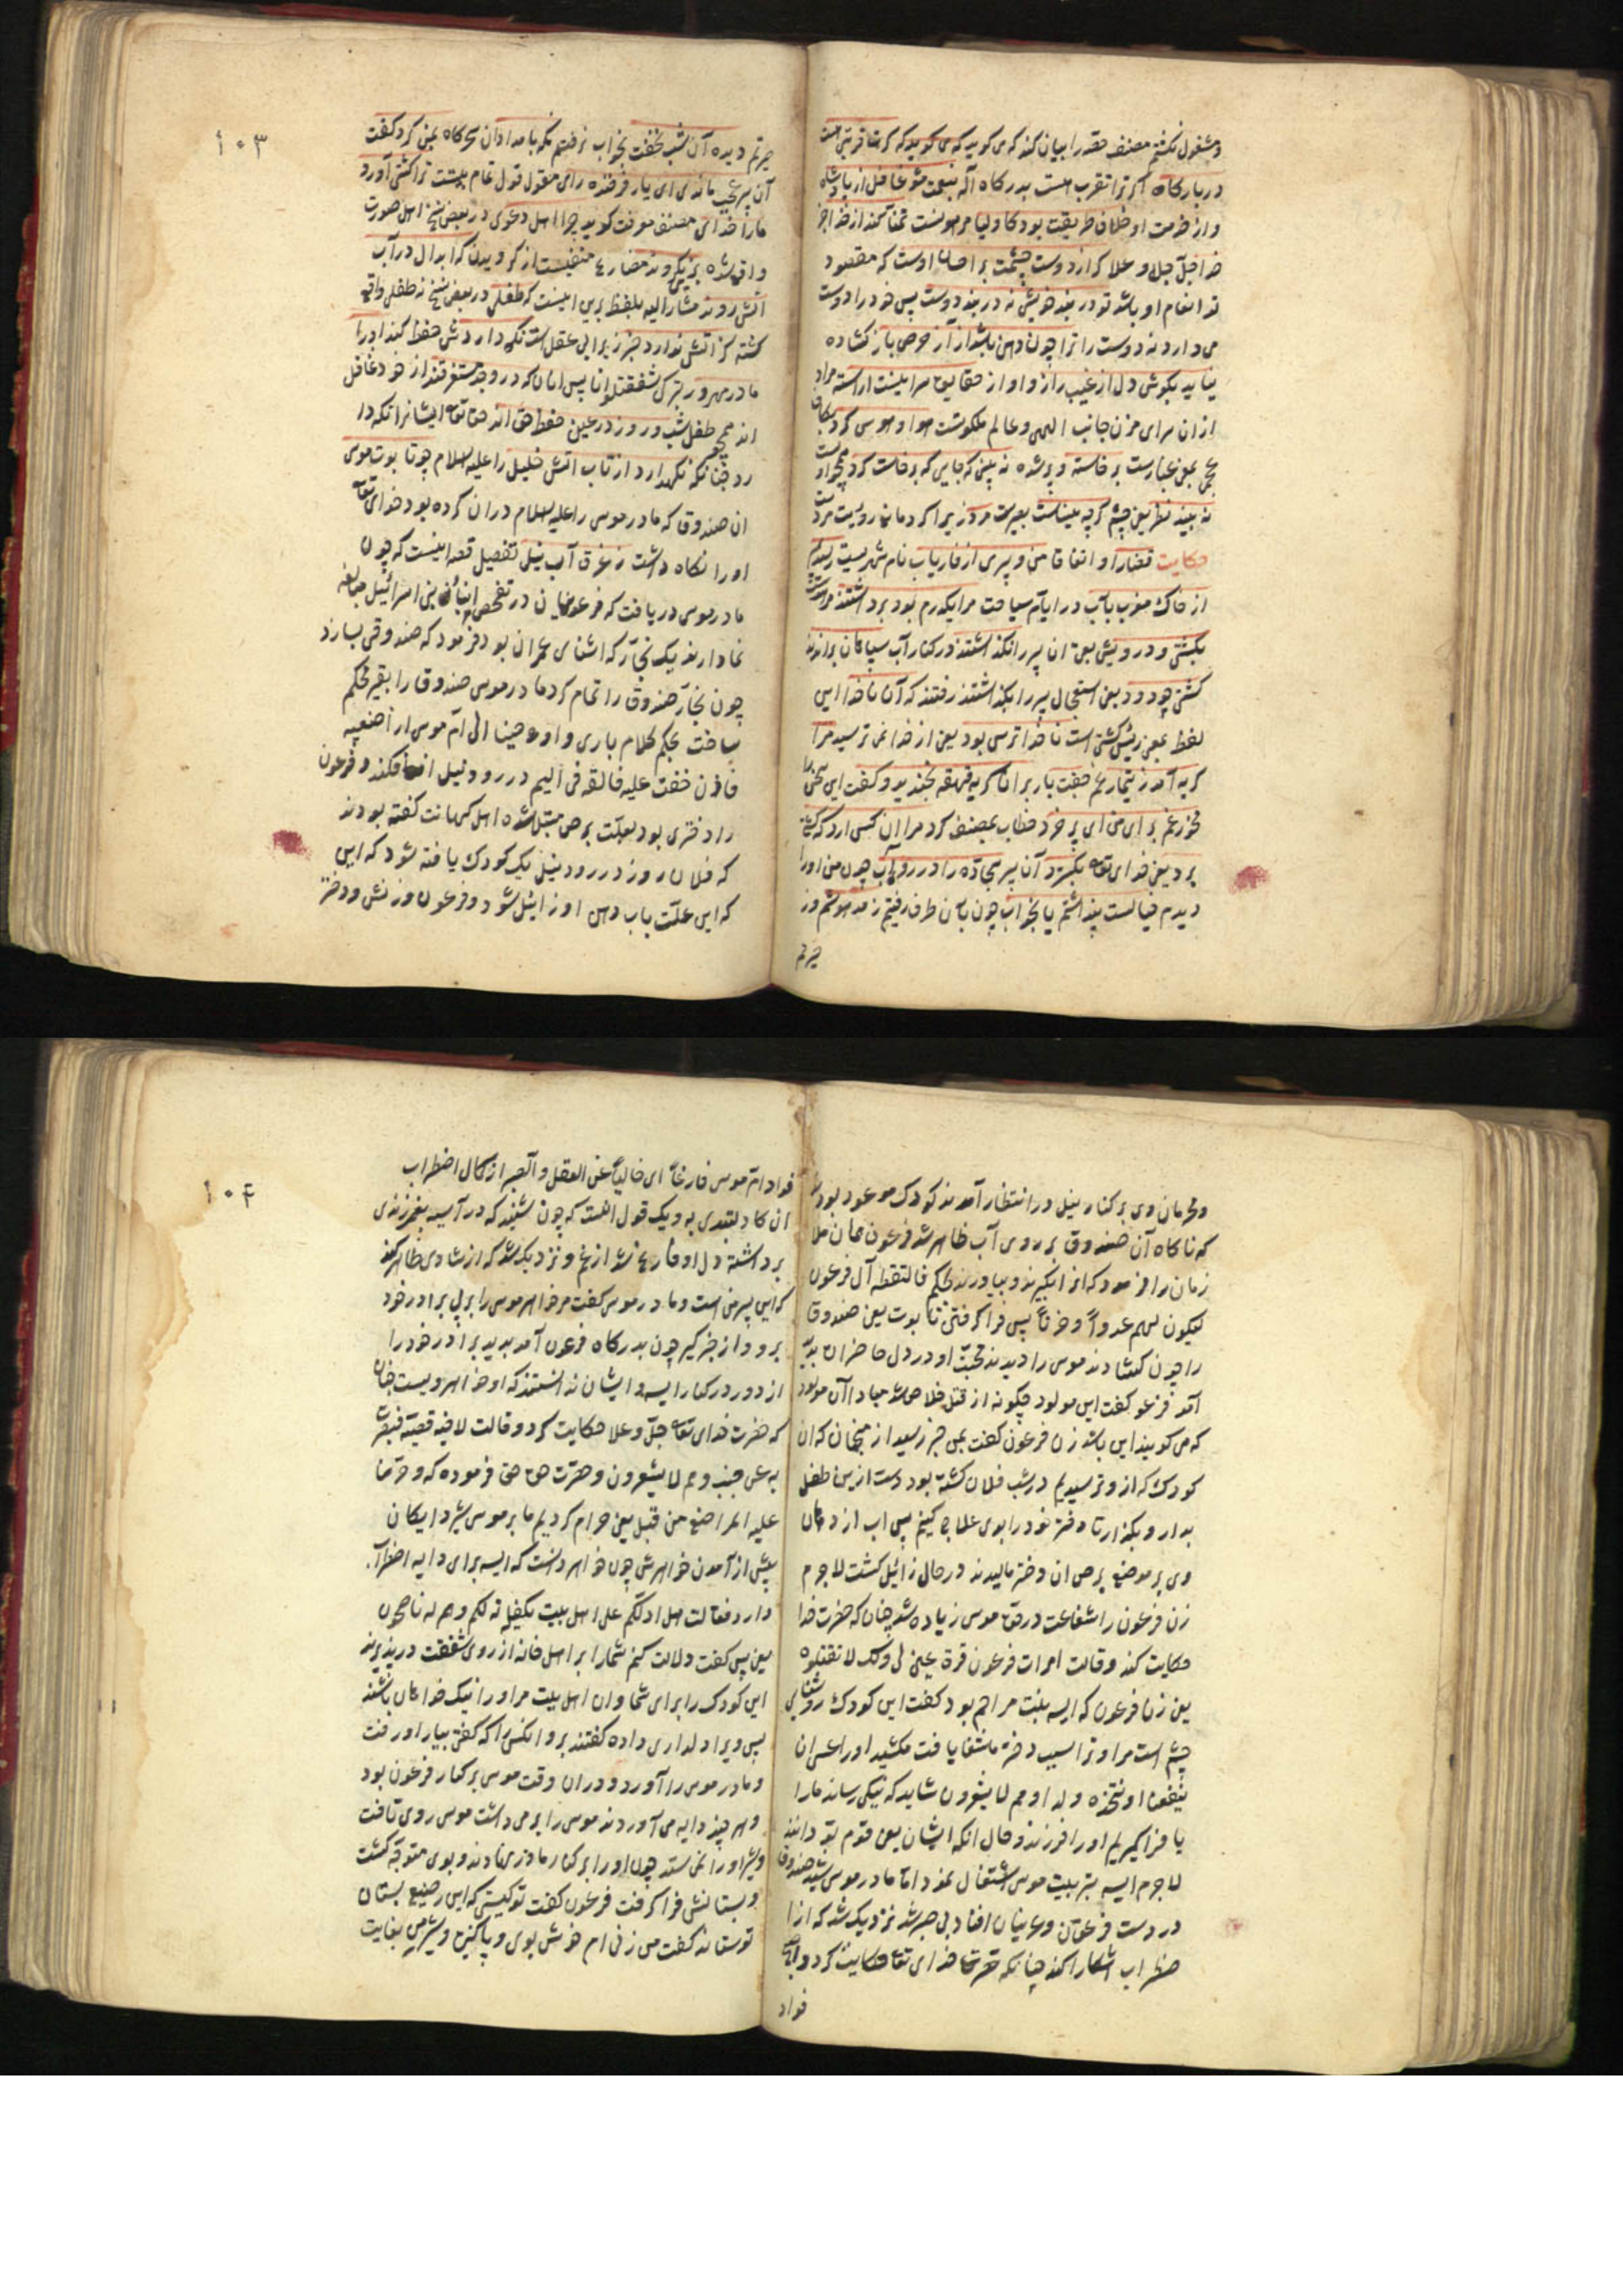 و مشغول نکشتم مصنف مقدر را بیان کند که می کوید که می کوید که کرت قربتی هست
در بارکاه اکر ترا تقرب هست بدرکاه اله بنعمت مشو غافل از پادشاه
و از خدمت او خلاف طریقت بود کاولیا مرهونست تمنا کنند از خدا جز
خدا جل جلا و علا کر از دوست چشمت بر احسان اوست که مقصود
تو انعام او باشد تو در بند خویشی نه در بند دوست پس خود را دوست
می داری نه دوست را ترا چون دهن باشد از آز حرص باز کشاده
نیاید بکوش دل از غیب راز و او از حقایق سرا یست اراسته مراد
از ان سرای مخزن جانب الهی و عالم ملکوتست هوا و هوس کرد
یعنی غبارست برخاسته و پر شده نه بینی که جایی که برخاست کرد
نه بیند نظر یعنی چشم کرچه بیناست بصیرت مرد زیرا کرد مانع رویت مرد
حکایت قضارا و اتفاقا من و پیری از فاریاب نام شهریست رسیدیم
از خاک مغرب بآب در ایام سیاحت مرا یکدرم بود برداشتند مرا
بکشتی و درویش یعنی ان پیر را نکذاشتند در کنار آب سیاهان براندند
کشتی چو دود یعنی استعجال پیر را بکذاشتند رفتند که آن ناخدا این
لفظ بمعنی رئیس کشتی است ناخدا ترس بود یعنی از خدا نمی ترسید مرا
کریه آمد ز تیمار غم جفت یار بر ان کریه قهقه بخندید و کفت این سخن
مخور غم برای من ای پر خرد خطاب بمصنف کرد مرا ان کس ارد که کشتی
برد یعنی خدای تعالی بکسترد آن پیر سجاده را در روی آب چون من او را
دیدم خیالست پنداشتم یا بخواب چون بآن طرف رفتیم ز مدهوشیم در
حیرتم
۱۰۳
حیرتم دیده آن شب نخفت بخواب نرفتم نکه بامدادان سحرکاه بمن کرد کفت
آن پیر عجب ماندی ای یار فرخنده رای مقول قول تمام بیتست ترا کشتی آورد
مارا خدای مصنف موقت کوید چرا اهل دعوی در بعض نسخ اهل صورت
واقع شده برین نکروند مضارع منفیست از کرویدن که ابدال در آب
آتش روند مشار الیه بلفظ برین اینست که طفلی در بعض نسخ نه طفلی واقع
کشته کز آتش ندارد خبر زیرا بی عقل است نکه داردش حفظ کند او را
مادر مهرور بترک شفقتلو انا پس انان که در وجد مستغرقند از خود غافل
اند همچو طفل شب و روز در عین حفظ حق اند حق تعالی ایشانرا نکه دا
رد چنانکه نکهدارد از تاب اتش خلیل را علیه السلام چو تابوت موسی
ان صندوق که مادر موسی را علیه السلام دران کرده بود خدای تعالی
او را نکاه داشت ز غرق آب نیل تفصیل قصه اینست که چون
مادر موسی دریافت که فرعونیان در تفحص ابنای بنی اسرائیل مبالغه
نمودارند یک نجار که اشنای عمران بود فرمود که صندوقی بسازد
چون نجار صندوق را تمام کرد مادر موسی صندوق را بقیر محکم
ساخت بحکم کلام باری و اوحینا الی ام موسی ان ارضعیه
فاذن خفت علیه فالقه فی الیم در رود نیل افکند و فرعون
را دختری بود بعلت برص مبتلا شده اهل کهانت کفته بودند
که فلان روز در رود نیل یک کودک یافته شود که این
که این علت باب دهن او زائل شود و فرعون و زنش و دختر
و محرمان وی بر کنار نیل در انتظار آمدند کودک موعود بود
که ناکاه آن صندوق بر روی آب ظاهر شد فرعون
زمان را فرمود که انرا بکیرند و بیاورند بحکم فالتقطه آل فرعون
لیکون لهم عدوا و حزنا پس فرا کرفتن تابوت یعنی صندوق
را چون کشادند موسی را دیدند محبت او در دل حاضران پدید
آمد فرعون کفت این مولود چکونه از قتل خلاص شد مبادا آن مولود
که می کویند این باشد زن فرعون کفت بمن خبر رسید از منجمان که ان
کودک که از و ترسیدیم در شب فلان کشته بود دست ازین طفل
بدار و بکذار تا دختر خود را بوی علاج کنیم پس اب از دهان
وی بر موضع برص ان دختر مالیدند در حال زائیل کشت لا جرم
زن فرعون را شفاعت در حق موسی زیاده شد چنان که حضرت خدا
حکایت کند و قالت امرات فرعون قرة عینی لی و لک لا تقتلوه
یعنی زن فرعون که ایسیه بنت مزاحم بود کفت این کودک روشنایی
چشم است مرا و ترا بسبب دختر ما شفا یافت مکشید او را عسی ان
ینفعنا او نتخذه ولدا و هم لا یشعرون شاید که نیکی رساند مارا
یا فرا کیریم او را فرزند و حال انکه ایشان یعنی قوم نمی دانند
لا جرم ایسیه بتربیت موسی اشتغال نمود اما مادر موسی شنید صندوق
در دست فرعون و عونیان افتاد بی صبر شد نزدیک شد که از ا
ضطراب اشکارا کند چنانکه حضرت خدای تعالی حکایت کرد و اصبح
فواد
۱۰۴
فواد ام موسی فارغا ای خالیا عن العقل و الصبر از کمال اضطراب
ان کادت لتبدی به و یک قول انست که چون شنید که در آسیه بفرزندی
برداشته دل او فارغ شد از غم و نزدیک شد که از شادی ظاهر کند
که این پسر من است و مادر موسی کفت مر خواهر موسی را بر پی برادر خود
برو و از خبر کیر چون بدرکاه فرعون آمد بدید برادر خود را
از دور در کنار ایسیه و ایشان ندانستند که او خواهر ویست چنان
که حضرت خدای تعالی جل و علا حکایت کرد و قالت لاخته قصیه فبصرت
به عن جنب و هم لا یشعرون و حضرت حق فرموده که و حرمنا
علیه المراضع من قبل یعنی حرام کردیم ما بر موسی شیر دایکان
پیش از آمدن خواهرش چون خواهر دانست که ایسیه برای دایه اضطراب
دارد فقالت هل ادلکم علی اهل بیت یکفلونه لکم و هم له ناصحون
یعنی پس کفت دلالت کنم شمارا بر اهل خانه از روی شفقت در پذیرند
این کودک را برای شما و ان اهل بیت مر او را نیک خواهان باشند
پس ویرا دلداری داده کفتند برو انکس را که کفتی بیار او رفت
و مادر موسی را آورد و دران وقت موسی بر کنار فرعون بود
و هر چند دایه می آوردند موسی را بر می داشت موسی روی تافت
و شیر او را نمی ستد چون او را بر کنار مادر نهادند و بوی متوجه کشت
و بستانش فرا کرفت فرعون کفت تو کیستی که این رضیع بستان
تو ستاند کفت من زنی ام خوش بوی و پاکیزه و شیر من بغایت